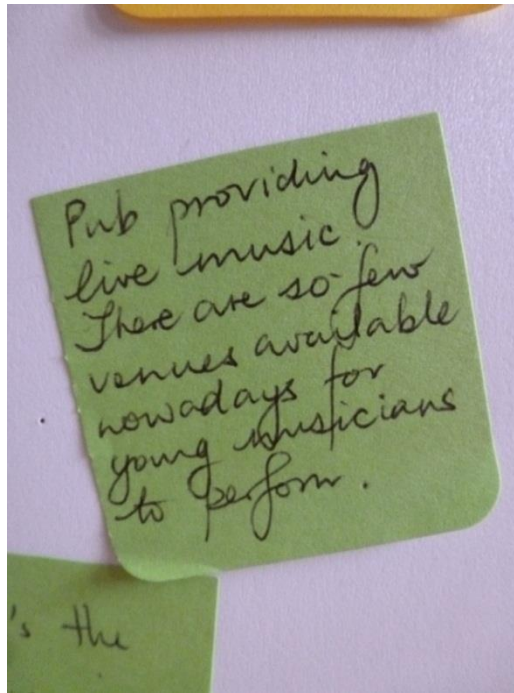 Pub providing
live music.
There are so few
venues available
nowadays for
young musicians
to perform.
's the